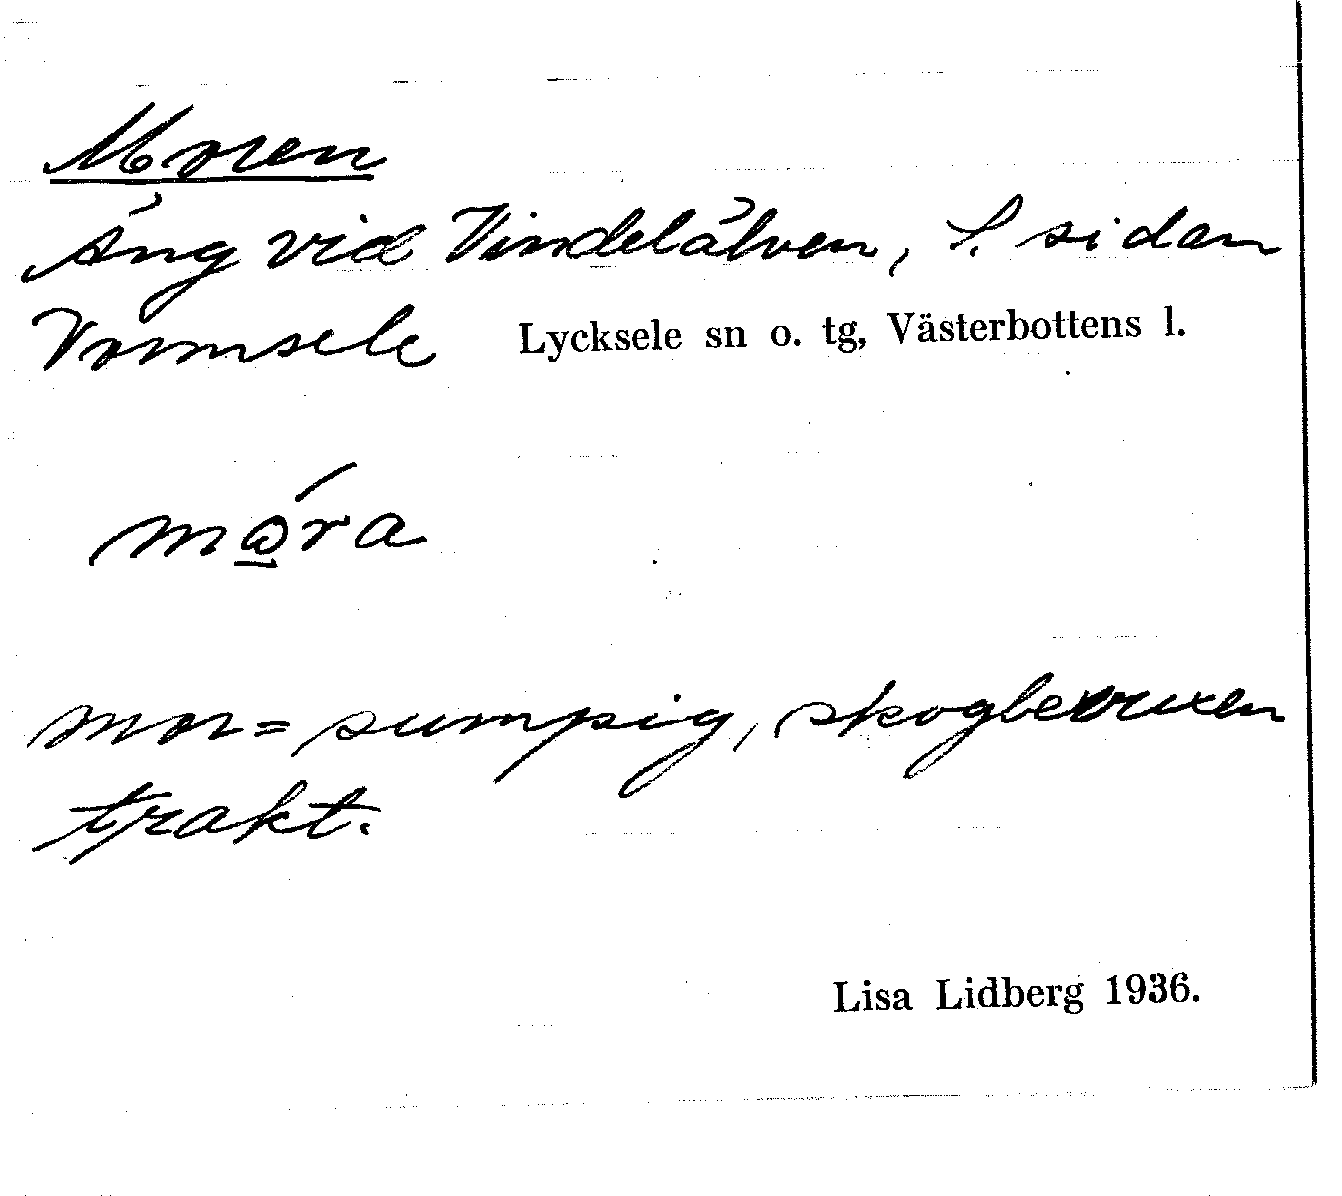 Moren
Äng vid Vindelälven, S. sidan
Vormsele Lycksele sn o. tg, Västerbottens l.
mor = sumpig, skogbevuxen
trakt.
Lisa Lidberg 1936.